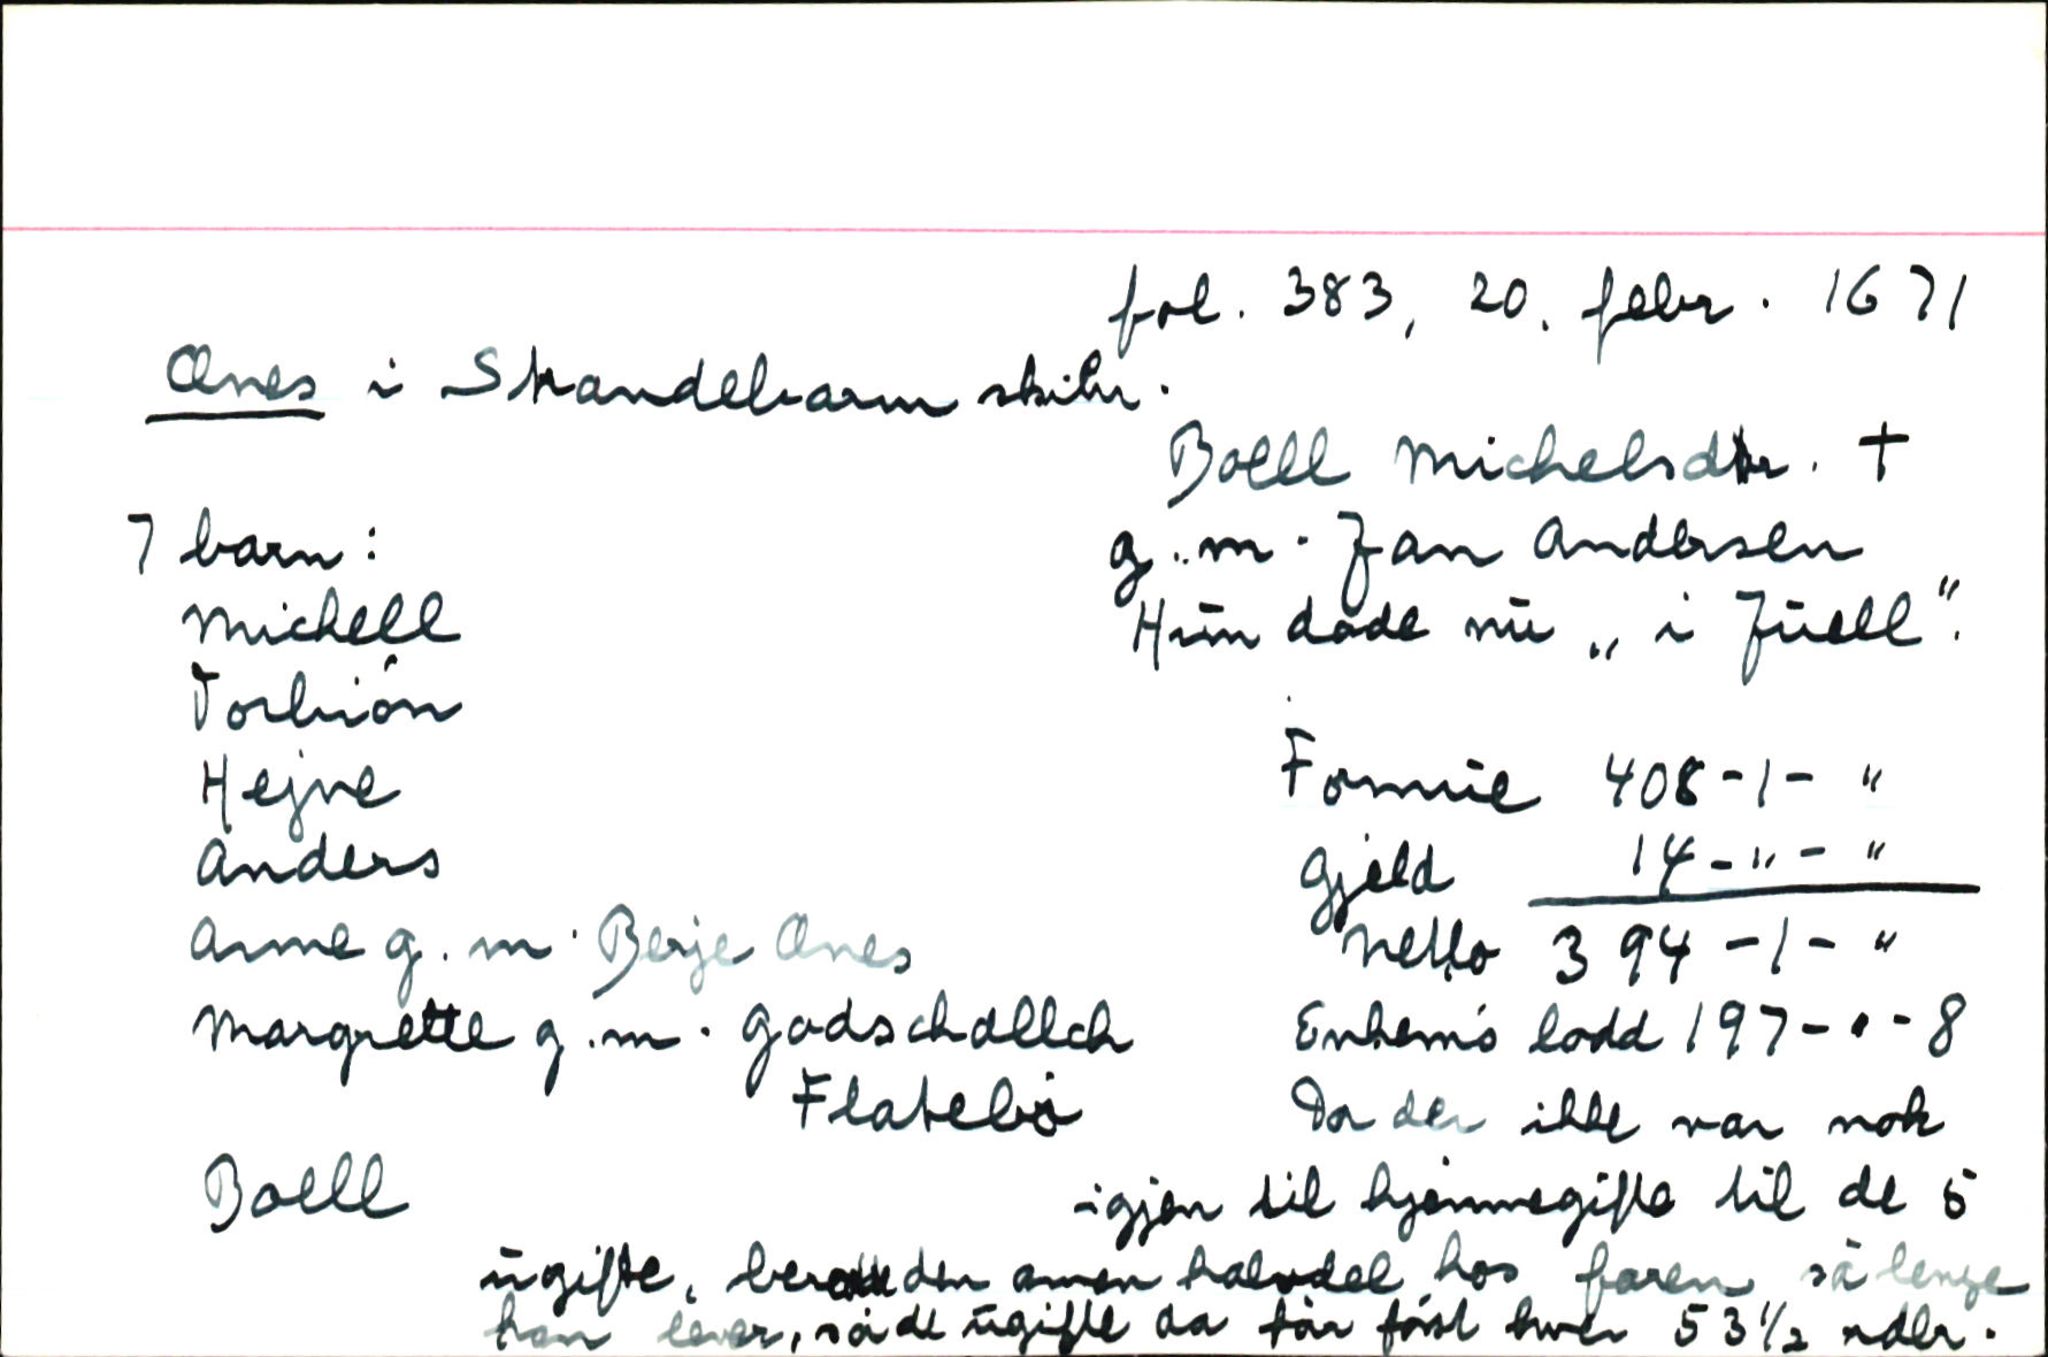 fol. 383, 20. febr. 1671
Ænes i Strandebarm skibr.
Boell Michelsdtr. †
7 barn:
g.m. Jan Andersen
Michell
Hun døde nu „i Juell".
Torbiøn
Hejne
Formue 408-1-"
Anders
Gjeld 14-"-"
Anne g.m. Berje Ænes
Netto 394-1-"
Margrette g.m. Godschallch
Enkem's lodd 197-"-8
Flatebø
Da der ikke var nok
Boell
igjen til hjemmegifte til de 5
ugifte, beror den annen halvdel hos faren så lenge
han lever, så de ugifte da får først hver 53½ rdlr.